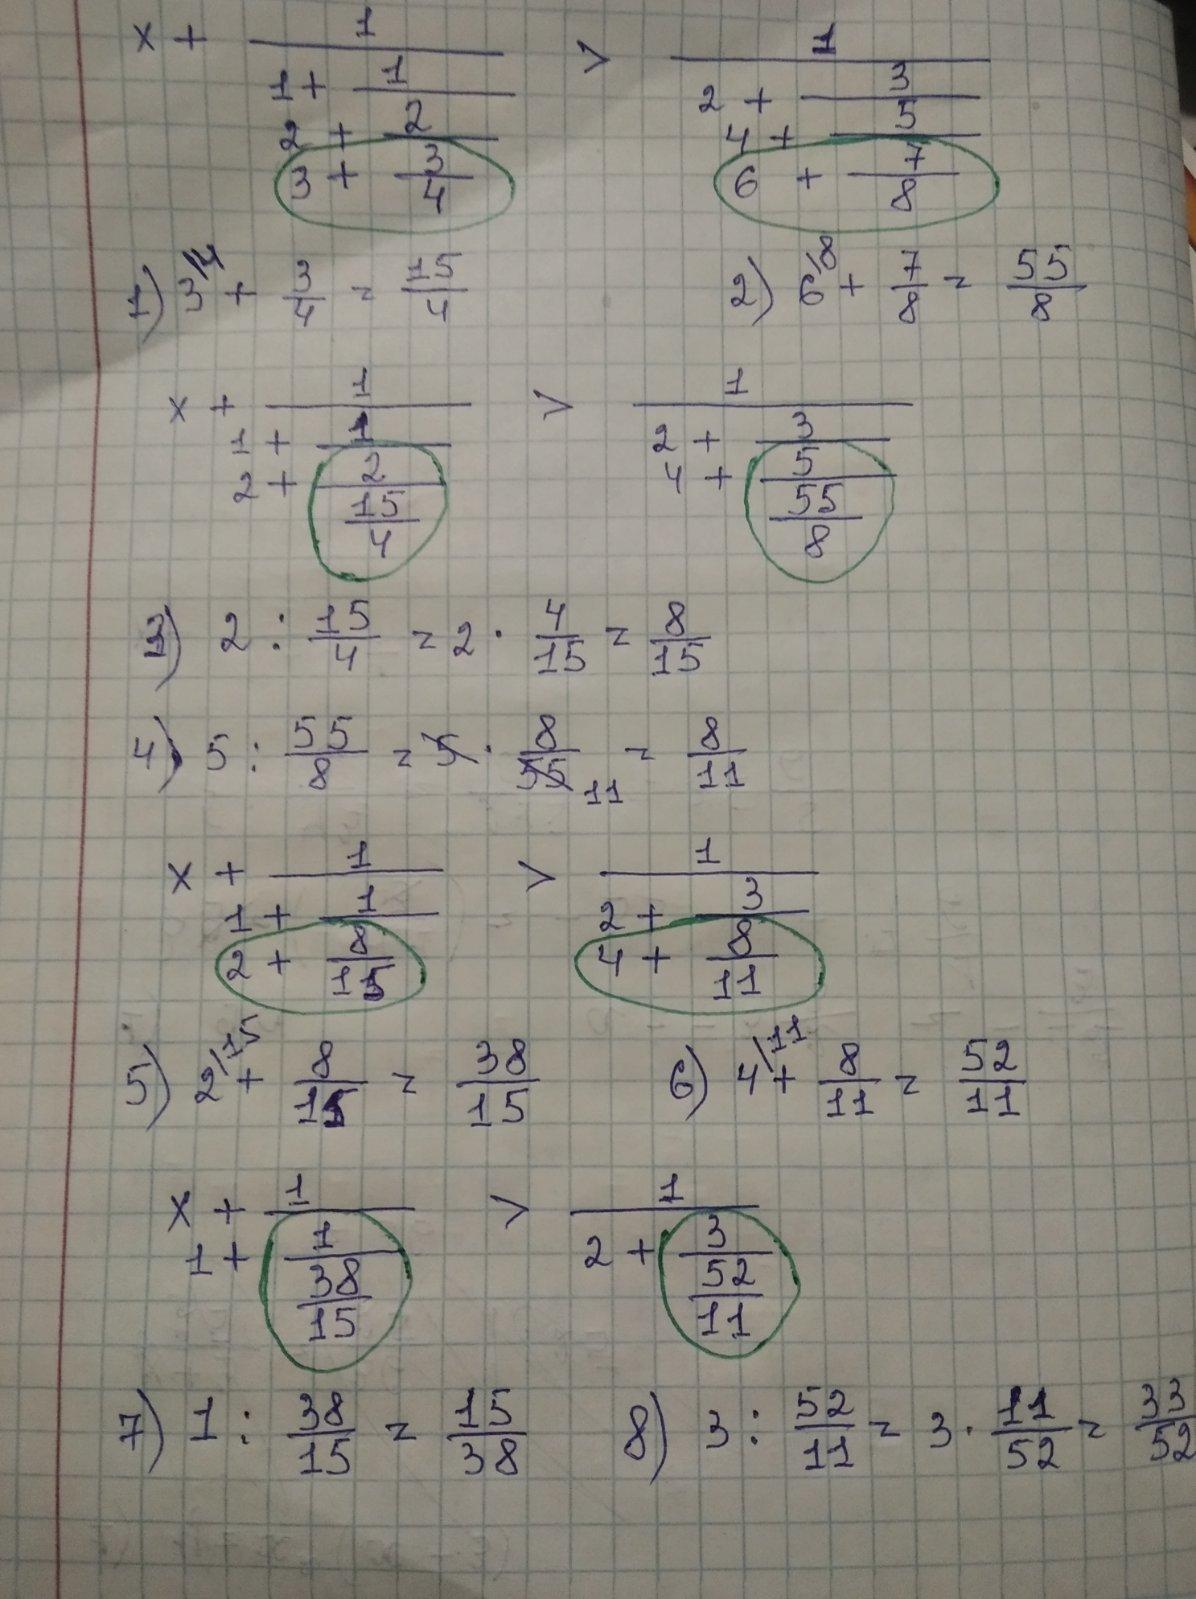 x + 1 > 1
1 + 1 2 + 3
2 + 2 4 + 5
3 + 3/4 6 + 7/8
1) 3\4 + 3/4 = 15/4 2) 6\8 + 7/8 = 55/8
x + 1 > 1
1 + 1 2 + 3
2 + 2 4 + 5
15/4 55/8
3) 2 : 15/4 = 2 · 4/15 = 8/15
4) 5 : 55/8 = 5 · 8/55 11 = 8/11
x + 1 > 1
1 + 1 2 + 3
2 + 8/15 4 + 8/11
5) 2\15 + 8/15 = 38/15 6) 4\11 + 8/11 = 52/11
x + 1 > 1
1 + 1 2 + 3
38/15 52/11
7) 1 : 38/15 = 15/38 8) 3 : 52/11 = 3 · 11/52 = 33/52